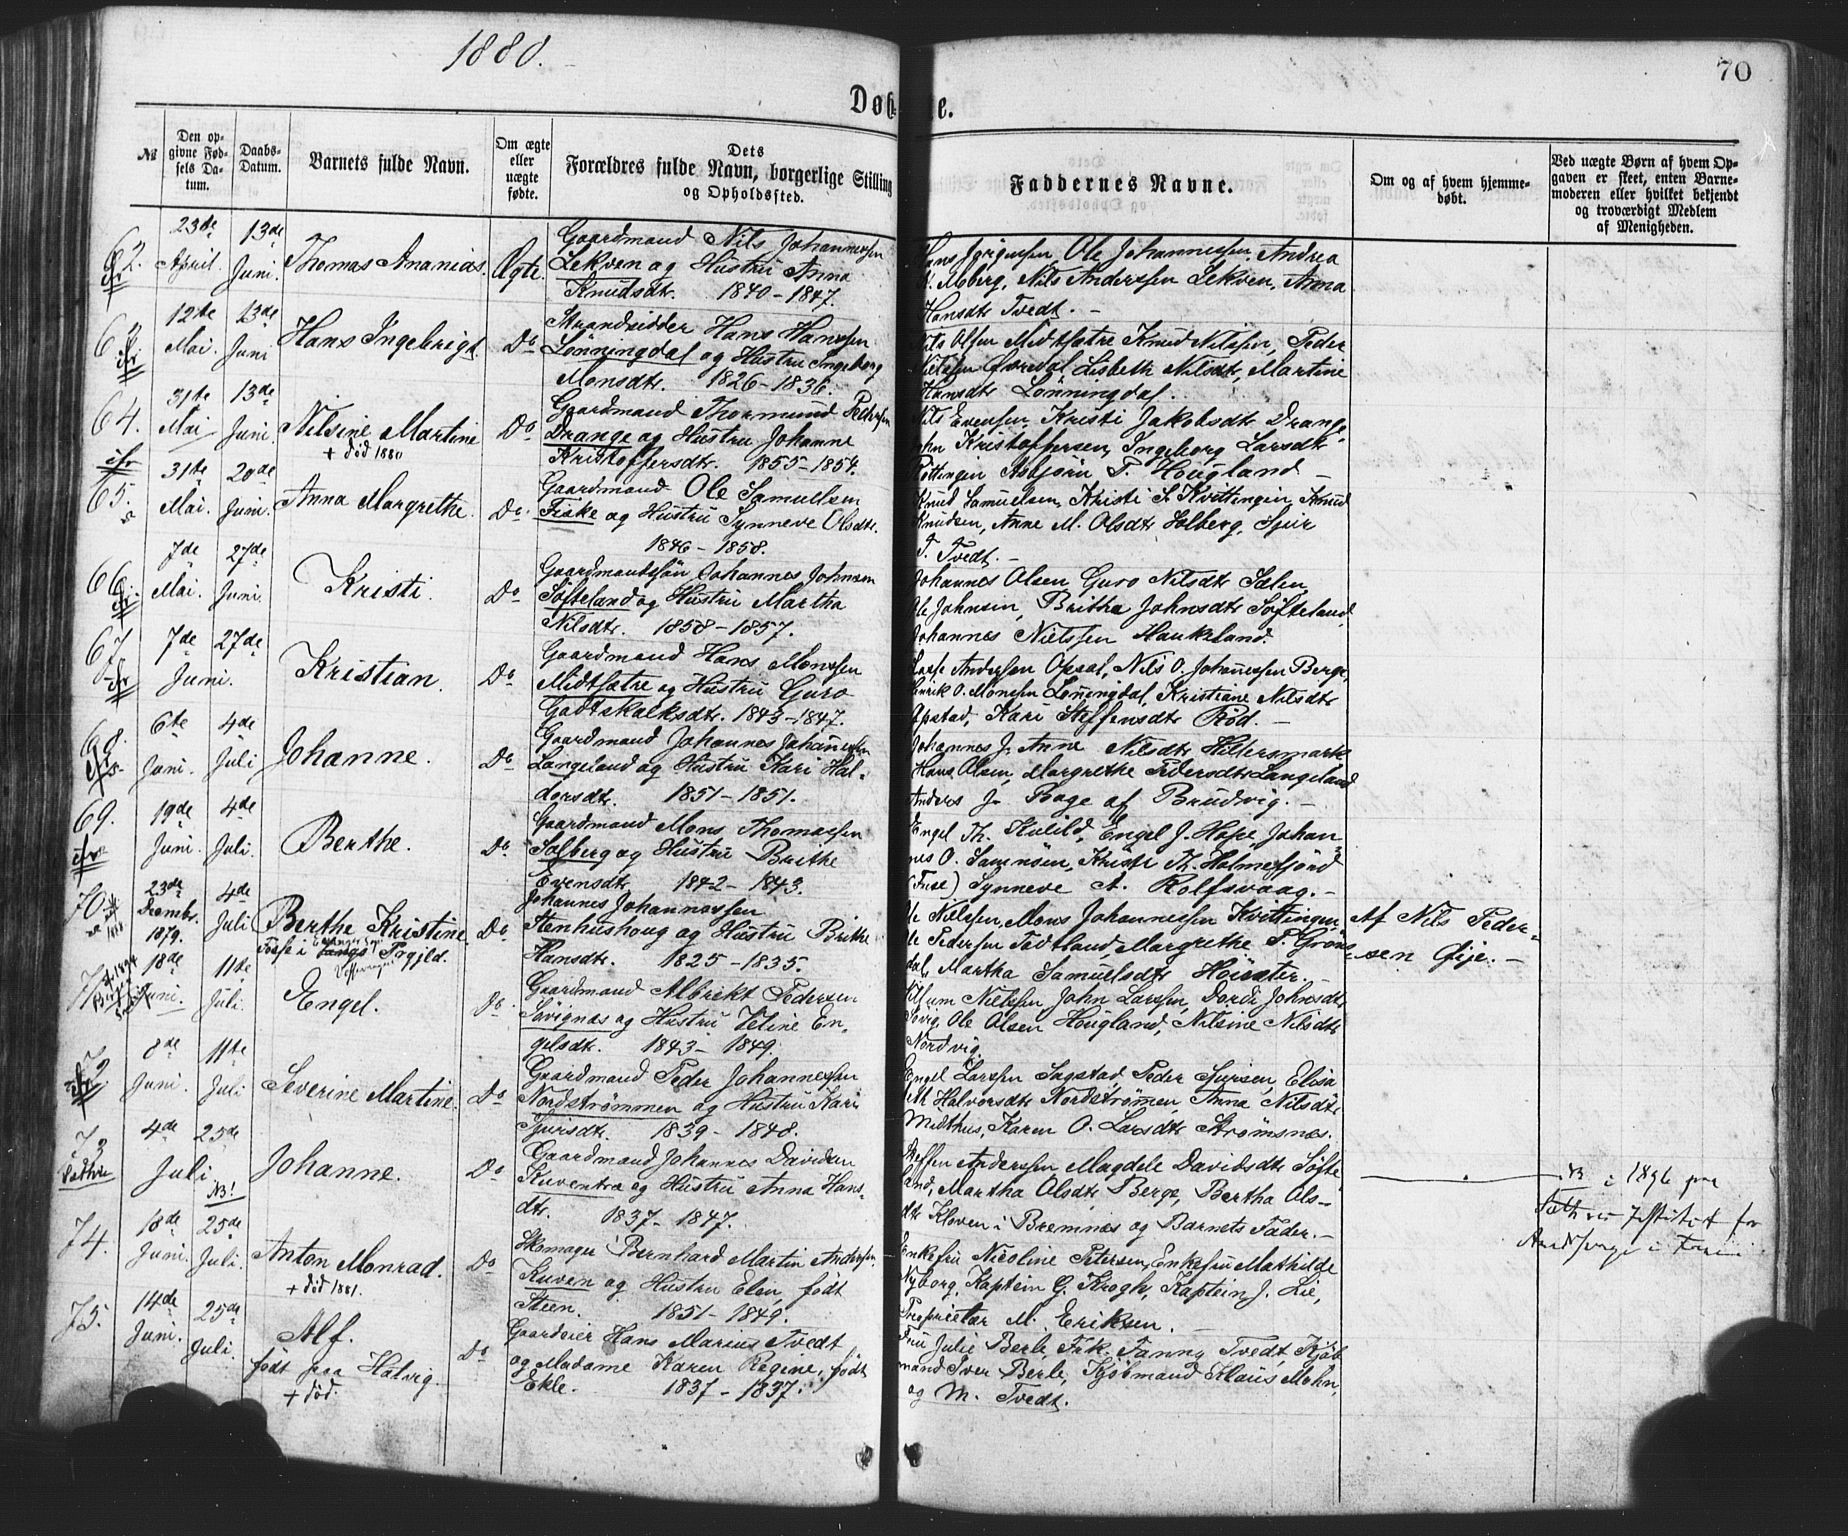 1880.
70
Døbte.
№
Den opgivne Fødsels Datum.
Daabs-Datum.
Barnets fulde Navn.
Om ægte eller uægte fødte.
Dets Forældres fulde Navn, borgerlige Stilling og Opholdssted.
Faddernes Navne.
Om og af hvem hjemmedøbt.
Ved uægte Børn af hvem Opgaven er skeet, enten Barnemoderen eller hvilket bekjendt og troværdigt Medlem af Menigheden.
62. 23de April. 13de Juni. Thomas Ananias. Ægte.
Gaardmand Nils Johannessen
Lekven og Hustru Anna
Knudsdtr. 1840-1847.
Hans Jørgensen, Ole Johannessen, Andrea
K. Moberg, Nils Anderssen Lekven, Anna
Hansdt Tvedt. -
63. 12te Mai. 13de Juni Hans Ingebrigt. Do
Strandsidder Hans Hanssen
Lønningdal og Hustru Ingeborg
Monsdtr. 1826-1836.
Nils Olsen Midtsætre Knud Nilssen, Peder
Nielssen Øvredal Lisbeth Nilsdtr, Martine
Hansdt Lønningdal.
64. 31te Mai 13de Juni. Nilsine Martine Do
+ død 1880
Gaardmand Thormund Pedersen
Drange og Hustru Johanne
Kristoffersdtr. 1855-1854.
Nils Evensen, Kristi Jakobsdt Drange,
John Kristoffersen, Ingeborg Larsdt
Røttingen Asbjørn T. Hougland -
65. 31te Mai. 20de Juni. Anna Margrethe. Do
Gaardmand Ole Samuelsen
Fiske og Hustru Synneve Olsdtr.
1846-1858.
Knud Samuelsen, Kristi S. Kvittingen, Knud
Knudsen, Anne M. Olsdt Solberg, Sjur
T. Tvedt. -
66. 7de Mai. 27de Juni. Kristi. Do
Gaardmandssøn Johannes Johnsen
Søfteland og Hustru Martha
Nilsdtr. 1858-1857.
Johannes Olsen Guro Nilsdt Sælen,
Ole Johnsen, Britha Johnsdt Søfteland,
Johannes Nielssen Haukeland.
67. 7de Juni. 27de Kristian. Do
Gaardmand Hans Monssen
Midtsætre og Hustru Guro
Gadtskalksdtr. 1843-1847.
Lasse Anderssen Opsal, Nils O. Johannessen Berge,
Henrik O. Monsen Lønningdal, Kristiane Nilsdt
Opstad, Kari Steffensdt Rød. -
68. 6te Juni. 4de Juli Johanne. Do
Gaardmand Johannes Johannessen
Langeland og Hustru Kari Hal-
dorsdtr. 1851-1851.
Johannes J. Anne Nilsdt Hiltersmark
Hans Olsen, Margrethe Pedersdt Langeland
Anders J. Rage af Brudvig. -
69. 19de Juni. 4de Juli. Berthe. Do
Gaardmand Mons Thomassen
Solberg og Hustru Brithe
Evensdtr. 1842-1843.
Engel Th. Kulild, Engel J. Hope, Johan-
nes O. Samnøen, Kristi Th. Holmefjord
(Fuse) Synneve A. Rolfsvaag. -
70. 23de Decembr. 1879. 4de Juli Berthe Kristine. Do
Johannes Johannessen
Stenhushoug og Hustru Brithe
Hansdtr. 1825-1835.
Ole Nielssen, Mons Johannessen Kvittingen,
Ole Pedersen Tedtland, Margrethe P. Grøns-
dal, Martha Samuelsdt Høisæter. -
Af Nils Peder-
sen Øije. -
71. 18de Juni. 11te Juli. Engel. Do
Gaardmand Albrikt Pedersen
Sævignæs og Hustru Zeline En-
gelsdtr. 1843-1849.
Villum Nielssen, John Larssen, Dorde Johnsdt
Sævig, Ole Olsen Hougland, Nilsine Nilsdt
Nordvig.
72 8de Juni. 11te Juli Severine Martine. Do
Gaardmand Peder Johannessen
Nordstrømmen og Hustru Kari
Sjursdtr. 1839-1848.
Engel Larssen Sagstad, Peder Sjursen, Elisa-
beth Halvorsdt Nordstrømen, Anna Nilsdt
Midthus, Karen O. Larsdt Strømsnes.
73 4de Juli 25de Johanne. Do
NB!
Gaardmand Johannes Davidsen
Kuventræ og Hustru Anna Hans-
dtr. 1837-1847.
Steffen Anderssen, Magdele Davidsdt Søfte-
land, Martha Olsdt, Berge, Bertha Ols-
dtr Kloven i Bremnes og Barnets Fader. -
NB i 1896 paa
74. 18de Juni. 25de Juli. Anton Monrad. Do
+ død 1881.
Skomager Bernhard Martin Andersen
Kuven og Hustru Elen, født
Steen. 1851-1849.
Enkefru Nicoline Petersen, Enkefru Mathilde
Nyborg, Kaptein G. Krogh, Kaptein J. Lie,
Proprietær M. Eriksen. -
75. 14de Juni. 25de Juli. Alf. Do
født paa Hatvig.
+ død.
Gaardeier Hans Marius Tvedt
og Madame Karen Regine, født
Ekle. 1837-1837.
Fru Julie Berle, Frk. Fanny Tvedt, Kjøb-
mand Iver Berle, Kjøbmand Klaus Mohn,
og M. Tvedt.